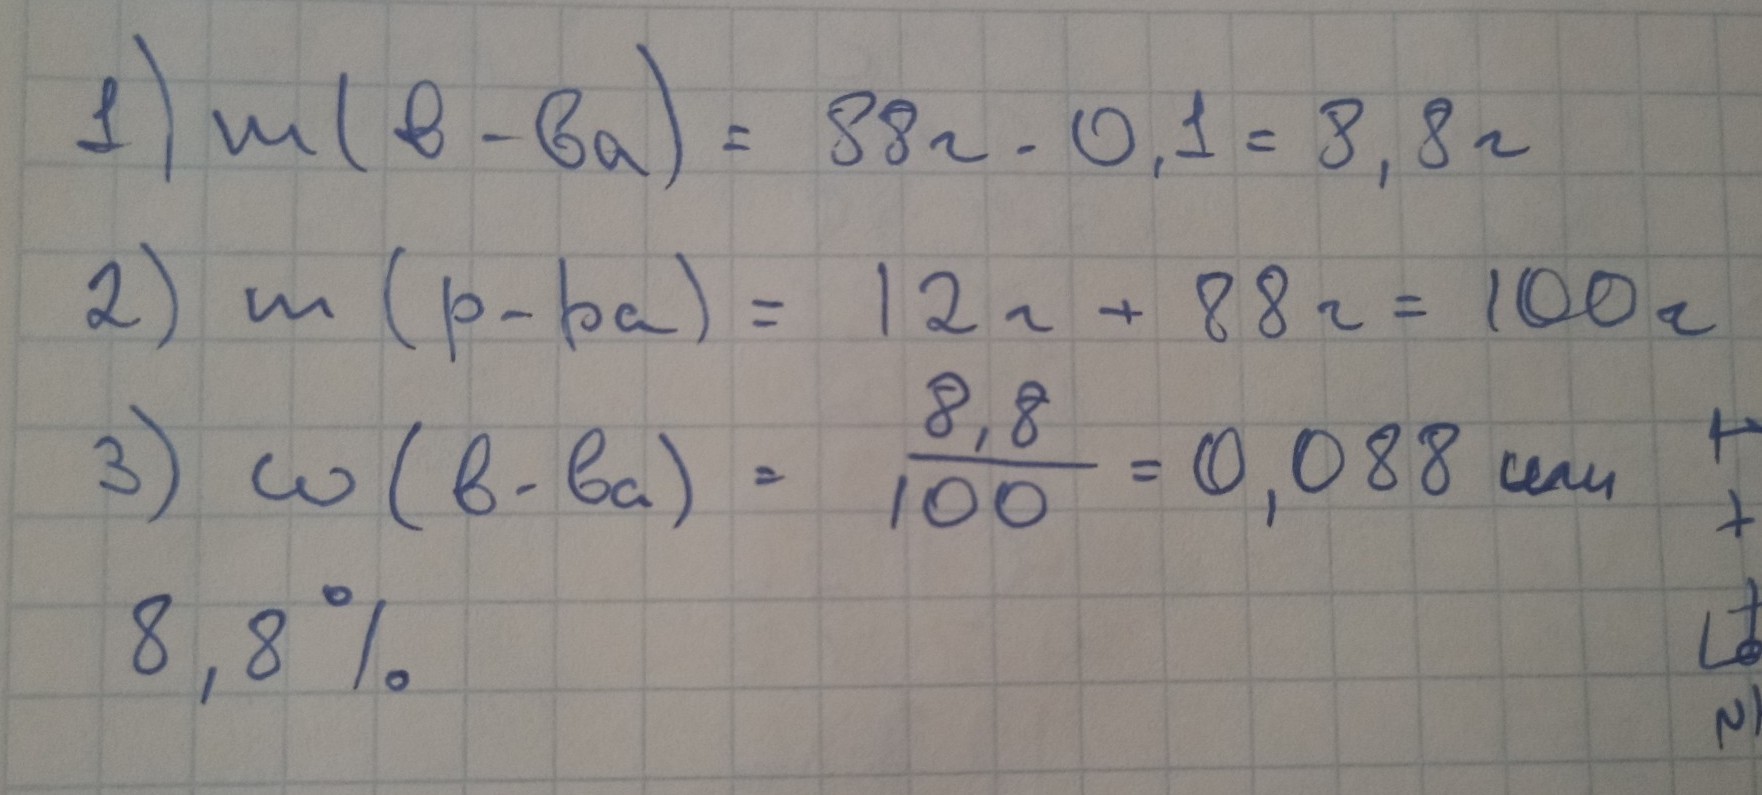 1) m(в-ва) = 88г · 0,1 = 8,8г
2) m (р-ра) = 12г + 88г = 100г
3) ω(в-ва) = 8,8/100 = 0,088 или
8,8%